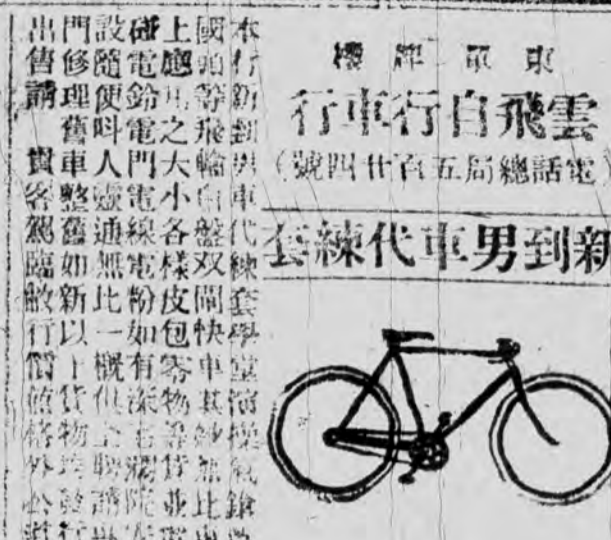 東單牌樓
雲飛自行車行
(電話總局五百廿四號)
新到男車代練套
本行新到男車代練套學堂演操氣鎗
國珀等飛輪自盤双閘快車其妙無比
上應用之大小各樣皮包零物等貨並
碰電鈴電門電線電粉如有
設隨便呌人靈通無比一概俱全聘請
門修理舊車整舊如新以上貨物
出售請 貴客駕臨敝行價値格外公道